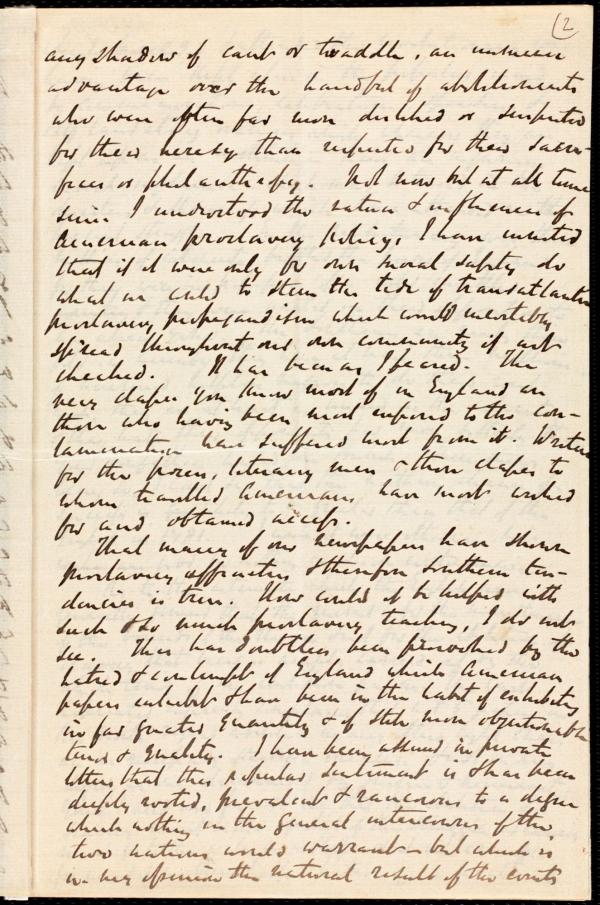 (2
any shadow of cant or twaddle, an immense
advantage over the handful of abolitionists
who were often far more disliked or suspected
for their heresy than respected for their sacri-
fices or philanthropy. Not now but at all times
since I understood the nature & influence of
American proslavery policy, I have insisted
that if it were only for our own moral safety do
what we could to stem the tide of transatlantic
proslavery propagandism which would inevitably
spread throughout our own community if not
checked. It has been as I feared. The
very classes you know most of in England are
those who having been most exposed to this con-
tamination have suffered most from it. Writers
for the press, literary men & those classes to
whom travelled Americans have most wished
for and obtained access.
That many of our newspapers have shown
proslavery affinities & therefore Southern ten-
dencies is true. How could it be helped with
such & so much proslavery teaching, I do not
see. This has doubtless been provoked by the
hatred & contempt of England which American
papers exhibit & have been in the habit of exhibiting
in far greater quantity & of still more objectionable
tone & quality. I have been assured in private
letters that this popular sentiment is & has been
deeply rooted, prevalent & rancorous to a degree
which nothing in the general intercourse of the
two nations would warrant – but which is
in my opinion the natural result of the events